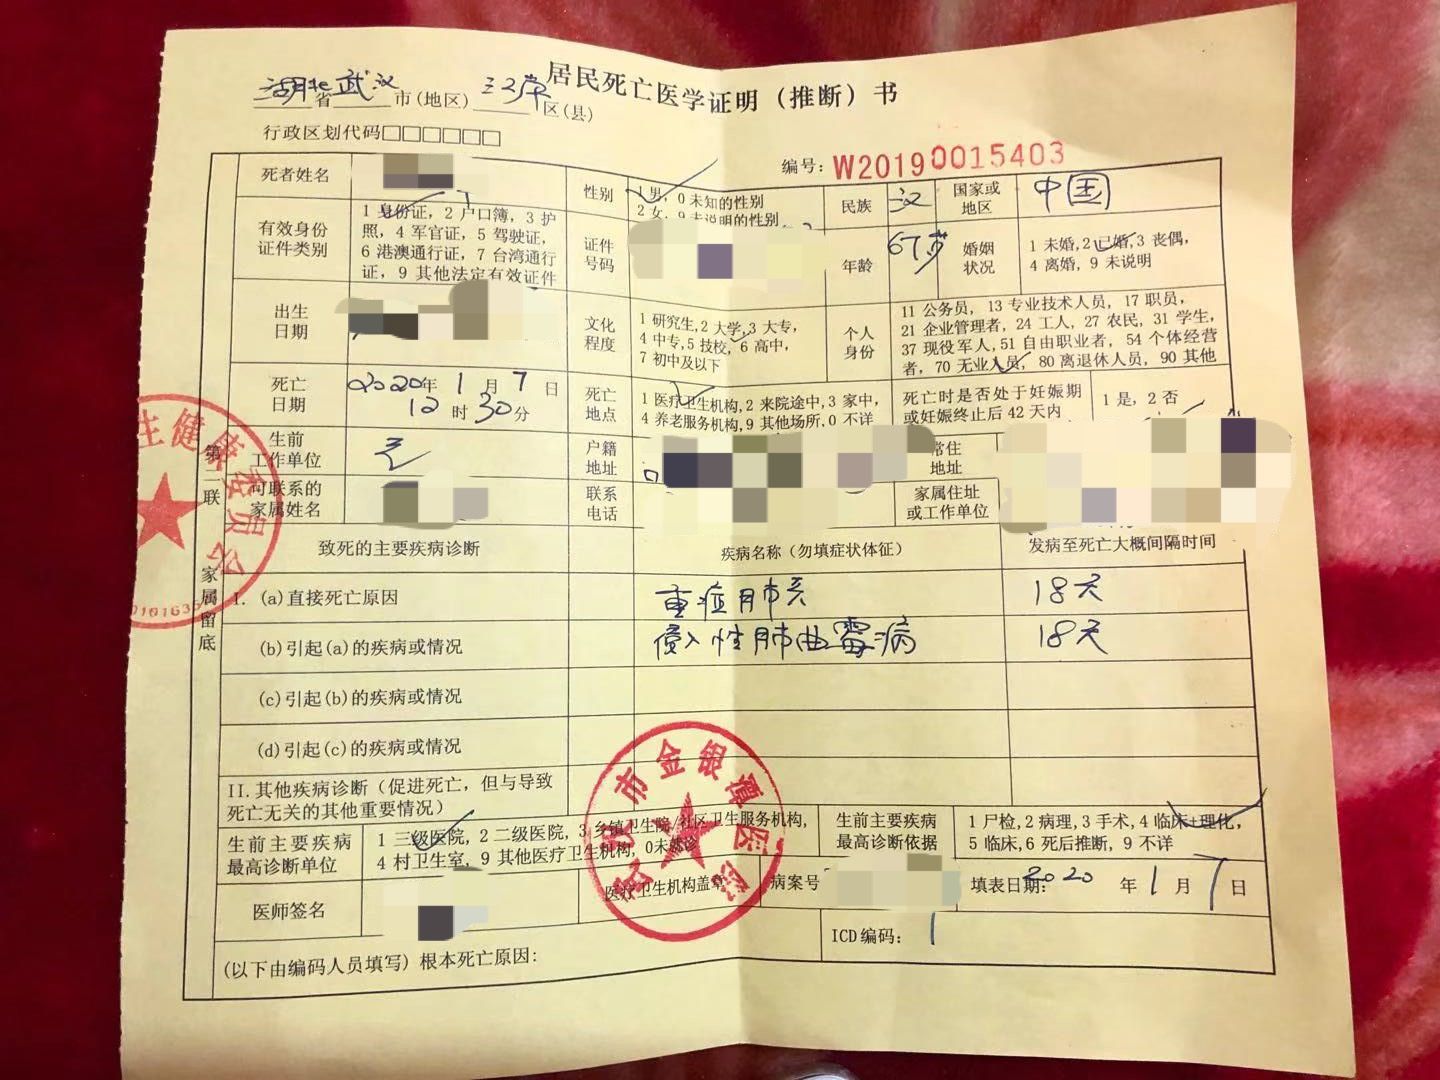 居民死亡医学证明（推断）书
湖北省武汉市(地区) 区(县)
行政区划代码□□□□□□
编号：W20190015403
死者姓名
性别
1 男，0 未知的性别
2 女，9 未说明的性别
民族
汉
国家或
地区
中国
有效身份
证件类别
1 身份证，2 户口簿，3 护
照，4 军官证，5 驾驶证，
6 港澳通行证，7 台湾通行
证，9 其他法定有效证件
证件
号码
年龄
67岁
婚姻
状况
1 未婚,2 已婚,3 丧偶，
4 离婚，9 未说明
出生
日期
文化
程度
1 研究生,2 大学,3 大专，
4 中专,5 技校，6 高中，
7 初中及以下
个人
身份
11 公务员，13 专业技术人员，17 职员，
21 企业管理者，24 工人，27 农民，31 学生，
37 现役军人，51 自由职业者，54 个体经营
者，70 无业人员，80 离退休人员，90 其他
死亡
日期
2020年 1 月 7 日
12 时 30 分
死亡
地点
1 医疗卫生机构,2 来院途中,3 家中，
4 养老服务机构,9 其他场所,0 不详
死亡时是否处于妊娠期
或妊娠终止后 42 天内
1 是，2 否
生前
工作单位
无
户籍
地址
常住
地址
可联系的
家属姓名
联系
电话
家属住址
或工作单位
第二联 家属留底
致死的主要疾病诊断
疾病名称（勿填症状体征）
发病至死亡大概间隔时间
I. (a)直接死亡原因
重症肺炎
18天
(b)引起(a)的疾病或情况
侵入性肺曲霉病
18天
(c)引起(b)的疾病或情况
(d)引起(c)的疾病或情况
II.其他疾病诊断（促进死亡，但与导致
死亡无关的其他重要情况）
生前主要疾病
最高诊断单位
1 三级医院，2 二级医院，3 乡镇卫生院/社区卫生服务机构，
4 村卫生室，9 其他医疗卫生机构，0未就诊
生前主要疾病
最高诊断依据
1 尸检，2 病理，3 手术，4 临床+理化，
5 临床，6 死后推断，9 不详
医师签名
医疗卫生机构盖章
病案号
填表日期：2020 年 1 月 7 日
(以下由编码人员填写）根本死亡原因：
ICD 编码：
生健康委员会
市金银潭医院